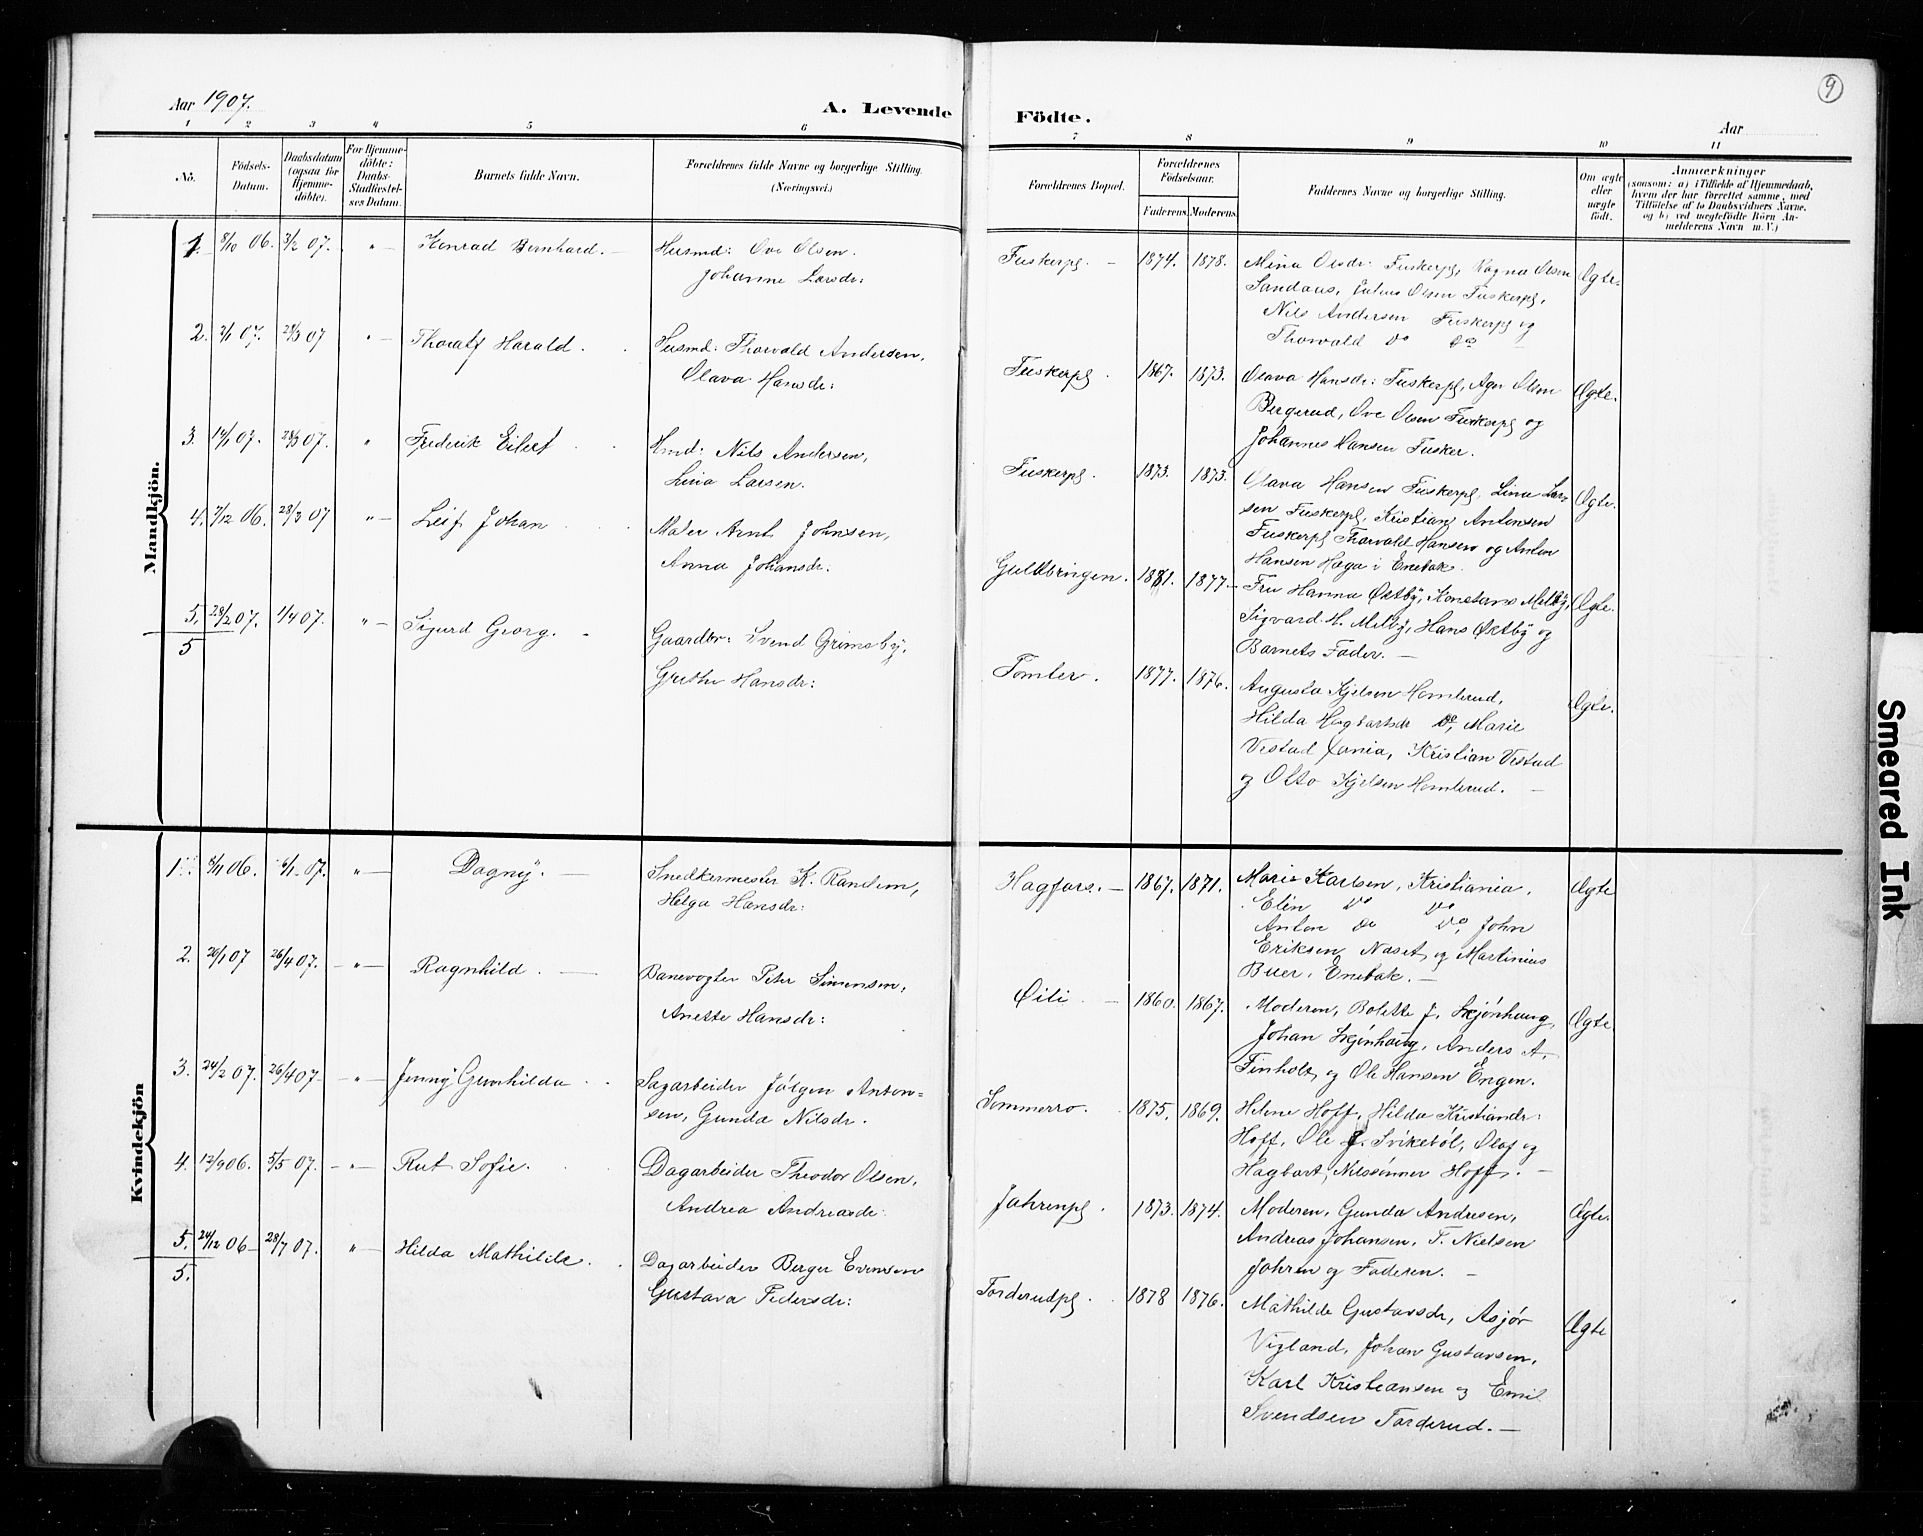 Aar 1907.
A. Levende Födte.
9
Aar
1 2 3 4 5 6 7 8 9 10 11
No.
Födsels-
Datum.
Daabsdatum
(ogsaa for
Hjemme-
döbte).
For Hjemme-
döbte:
Daabs-
Stadfæstel-
ses Datum.
Barnets fulde Navn.
Forældrenes fulde Navne og borgerlige Stilling.
(Næringsvei.)
Forældrenes Bopæl.
Forældrenes
Födselsaar.
Faderens. Moderens.
Faddernes Navne og borgerlige Stilling.
Om ægte
eller
uægte
födt.
Anmærkninger
(saasom: a) i Tilfælde af Hjemmedaab,
hvem der har forrettet samme, med
Tilföielse af to Daabsvidners Navne,
og b) ved uægtefödte Börn An-
melderens Navn m. V.)
Mandkjön.
1. 8/10 06. 3/2 07. " Konrad Bernhard. Husmd: Ove Olsen.
Johanne Larsdr:
Fuskerpl. 1874. 1878. Mina Olsdr: Fuskerpl, Ragna Olsen
Sandaas, Julius Olsen Fuskerpl,
Nils Andersen Fuskerpl og
Thorvald Do Do
Ægte.
2. 2/1 07. 28/3 07 " Thoralf Harald. Husmd: Thorvald Andersen,
Olava Hansdr:
Fuskerpl. 1867. 1873. Olava Hansdr: Fuskerpl, Olsen
Bergerud, Ove Olsen Fuskerpl og
Johannes Hansen Fusker.
Ægte.
3. 14/1 07. 28/3 07. " Frederik Eilert Hmd: Nils Andersen,
Lina Larsen.
Fuskerpl. 1873. 1873. Olava Hansen Fuskerpl, Lina Lar-
sen Fuskerpl, Kristian Antonsen
Fuskerpl Thorvald Hansen og Anton
Hansen Haga i Enebak.
Ægte.
4. 7/12 06. 28/3 07 " Leif Johan Maler Arnt Johnsen,
Anna Johansdr.
Guldbringen. 1881. 1877. Fru Hanna Østby, Konstanse Melby,
Sigvard H. Melby, Hans Østby og
Barnets Fader.
Ægte.
5. 28/2 07. 1/4 07. " Sigurd Georg. Gaardbr: Svend Grimsby,
Grethe Hansdr:
5
Tomter. 1877. 1876. Augusta Kjelsen Homlerud,
Hilda Hagbartsdr Do, Marie
Vestad Xania, Kristian Vestad
og Otto Kjelsen Homlerud.
Ægte.
Kvindekjön
1. 8/11 06. 6/1 07. " Dagny. Snedkermester K. Randem,
Helga Hansdr:
Hagfors. 1867. 1871. Marie Karlsen, Kristiania,
Elin Do Do
Anton Do Do, John
Eriksen Naset og Martinius
Buer, Enebak.
Ægte
2. 20/1 07 26/4 07. " Ragnhild. Banevogter Peter Simensen,
Anette Hansdr:
Øili 1860. 1867. Moderen, Bolette J. Skjønhaug,
Johan Skjønhaug, Anders A.
Finholt, og Ole Hansen Engen.
Ægte.
3. 24/2 07. 26/4 07. " Jenny Gunhilda Sagarbeider Jørgen Anton-
sen, Gunda Nilsdr.
Sommerro. 1875. 1869. Helene Hoff, Hilda Kristiandr:
Hoff, Ole J. Svikebøl, Olaf og
Hagbart, Nilssønner Hoff.
4. 12/9 06. 5/5 07. " Rut Sofie. Dagarbeider Theodor Olsen,
Andrea Andreasdr:
Jahrenpl. 1873. 1874. Moderen, Gunda Andresen,
Andreas Johansen, T. Nielsen
Jahren og Faderen.
Ægte.
5. 24/12 06 28/7 07. " Hilda Mathilde. Dagarbeider Berger Evensen
Gustava Pedersdr:
5.
Torderudpl. 1878 1876. Mathilde Gustavsdr, Asjør
Vigland, Johan Gustavsen,
Karl Kristiansen og Emil
Svendsen Torderud.
Ægte
Smeared Ink